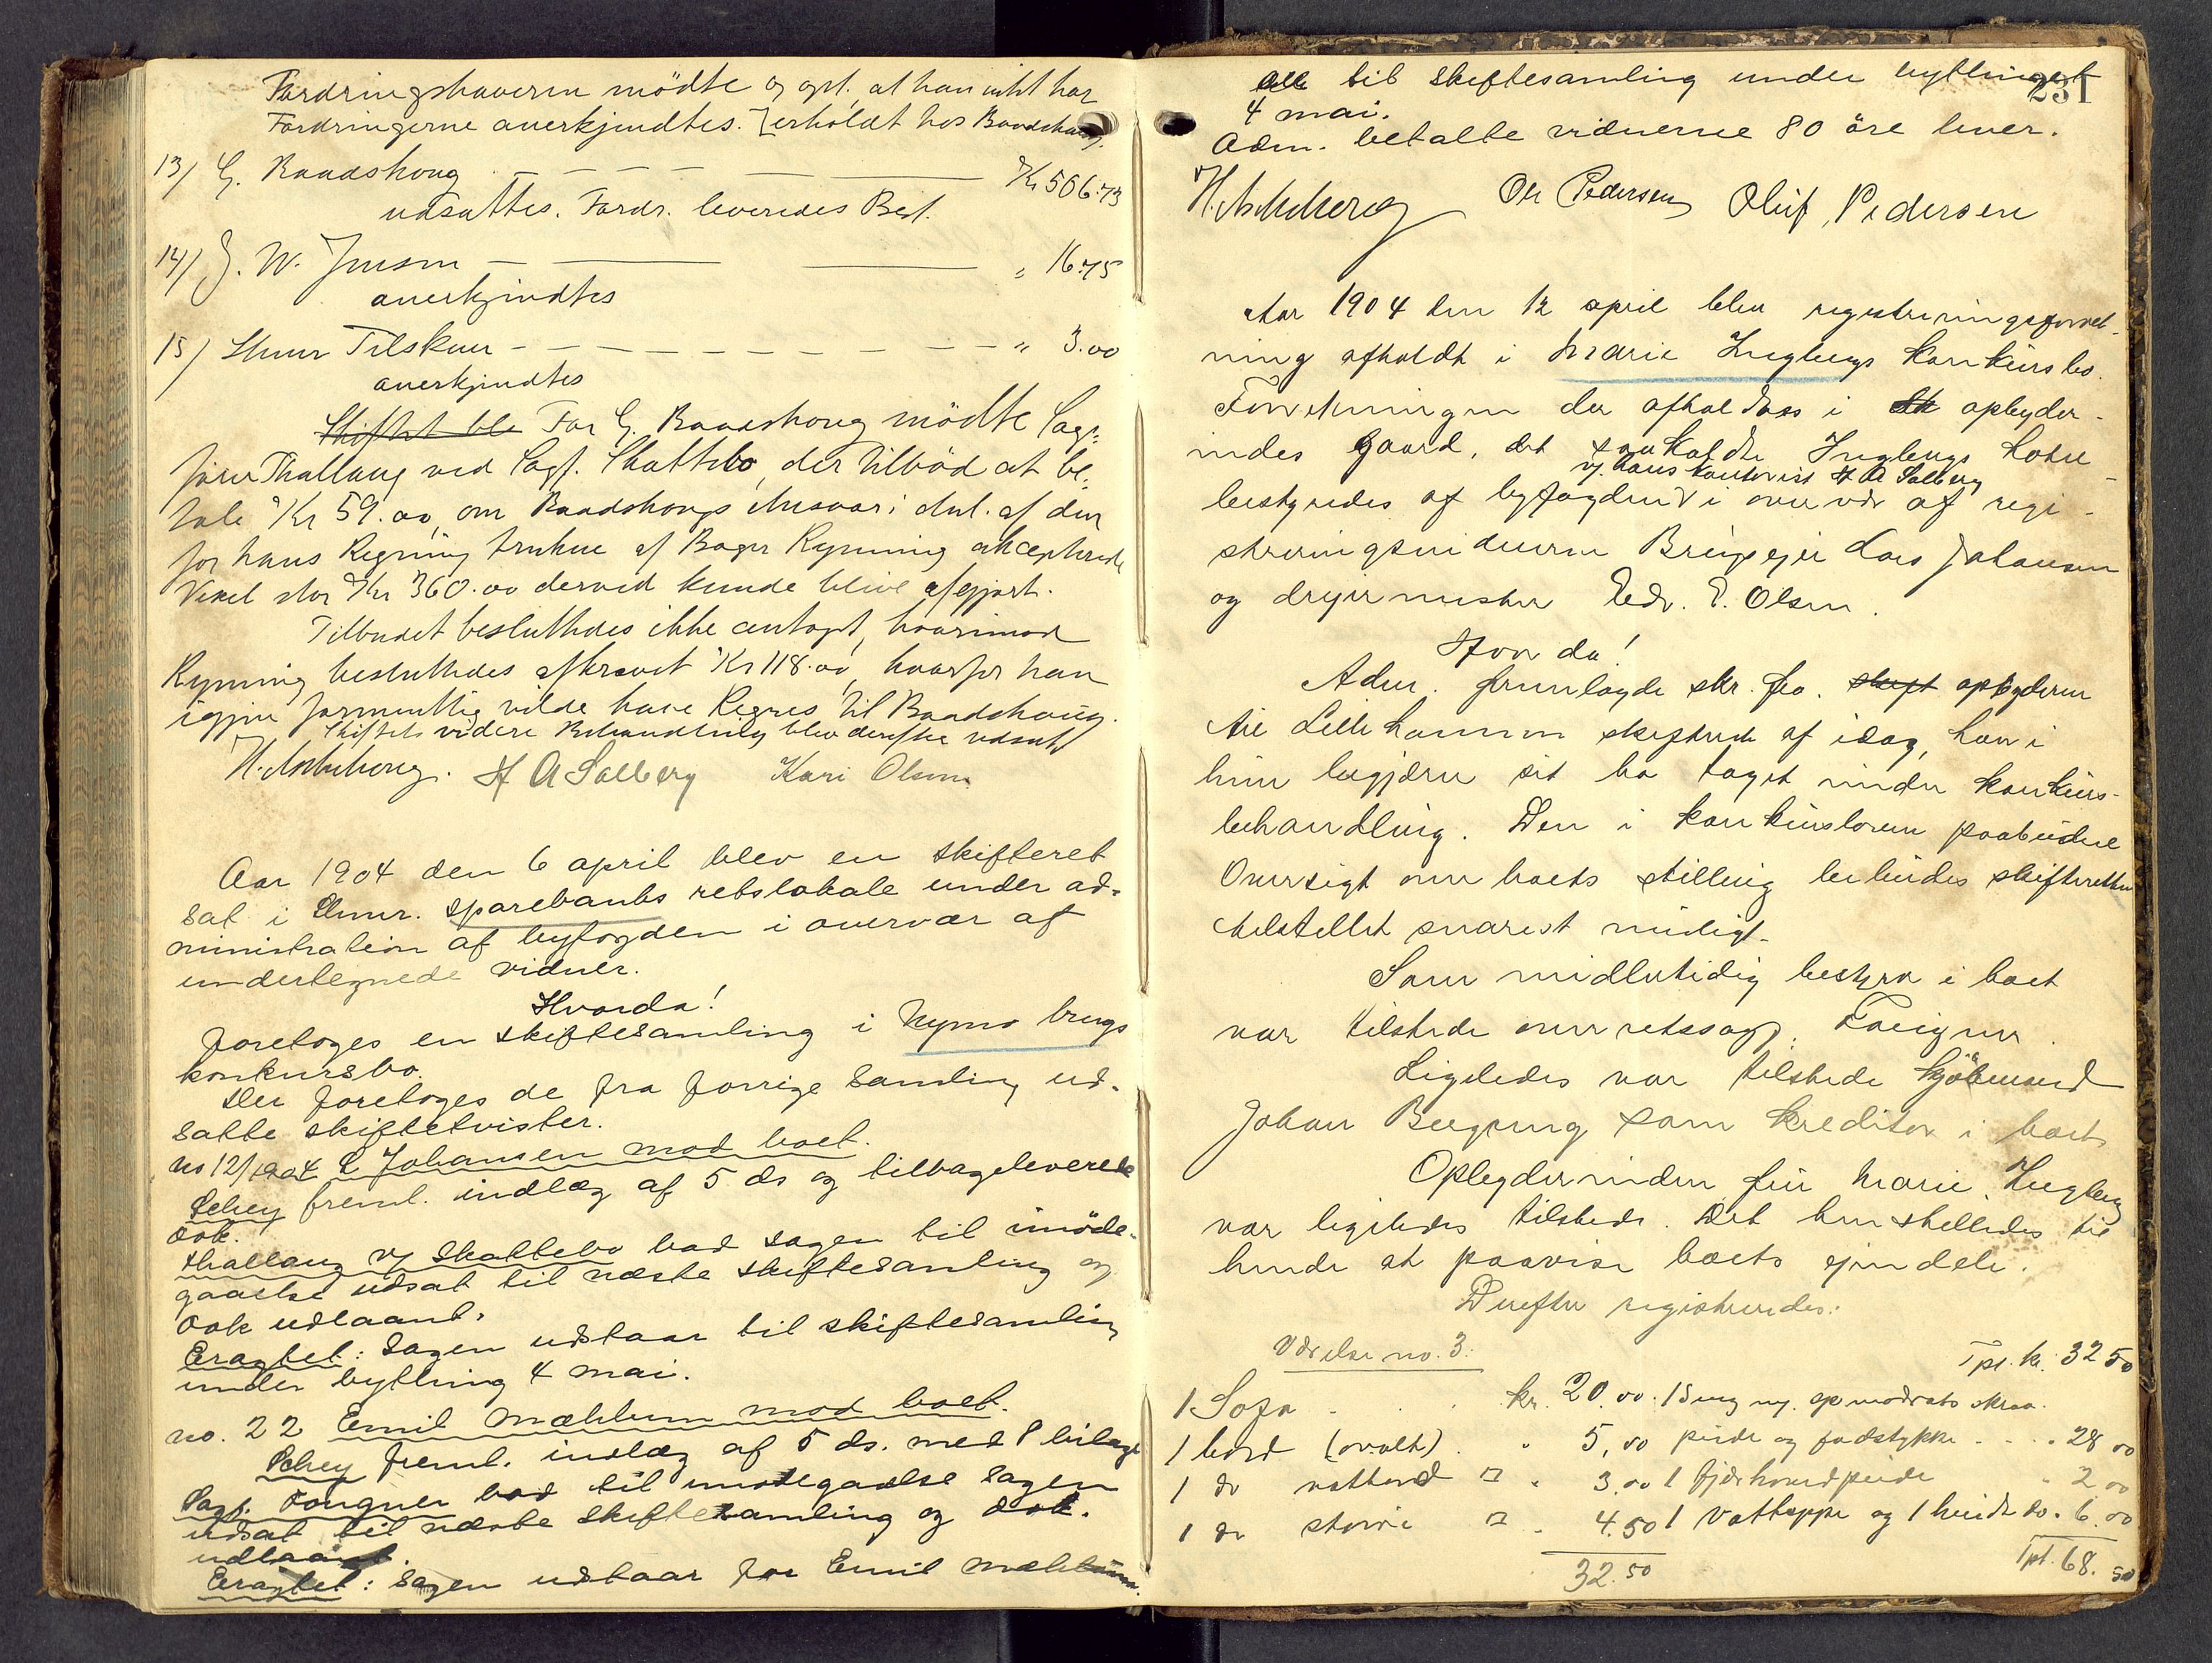 Fordringshaveren mödte og opl. at han intet har
Fordringerne anerkjendtes. [erholdt hos Baadshaug.
13/ G. Baadshoug — — — Kr 566.73
udsattes. Fordr. leveredes Best.
14/ J. W. Jensen — — — " 16.75
anerkjendtes
15/ Lhmr Tilskuer - - - - - - - " 3.00
anerkjendtes
Skiftet ble For G. Baadshoug mödte Sag-
förer Thallaug ved Sagf. Skattebo, der tilböd at be-
tale Kr 59.00, om Baadshougs Ansvar i Anl. af den
for hans Regning trukne af Bager Rynning akcepterede
Vexel stor Kr 360.00 derved kunde blive afgjort.
Tilbudet besluttedes ikke antaget, hvorimod
Rynning besluttedes afkrævet Kr 118.00, hvorfor han
igjen formentlig vilde have Regres til Baadshoug.
Skiftets videre Behandling blev derefter udsat
H. A Solberg Kari Olsen
Aar 1904 den 6 april blev en skifteret
sat i Lhmr. sparebanks retslokale under ad-
ministration af byfogden i overvær af
undertegnede vidner.
Hvorda!
foretoges en skiftesamling i Nymo brugs
konkursbo.
Der foretoges de fra forrige samling ud-
satte skiftetvister.
no 12/1904 L Johansen mod boet.
Schey freml. indlæg af 5 ds og tilbageleverede
dok.
Thallaug v/ Skattebo bad sagen til imöde-
gaaelse udsat til næste skiftesamling og
dok udlaant.
Eragtet: Sagen udstaar til skiftesamling
under bytling 4 mai.
no. 22 Emil Mæhlum mod boet.
Schey freml. indlæg af 5 ds. med 8 bilage
Sagf. Fougner bad til imødegaaelse sagen
udsat til næste skiftesamling og dok.
udlaant.
Eragtet: Sagen udstaar for Emil Mæhlum
231
alle til skiftesamling under bytlinget
4 mai.
Adm. betalte vidnerne 80 öre hver.
Ole Pedersen Oluf Pedersen
Aar 1904 den 12 april blev registreringsforret-
ning afholdt i Marie Lugbergs konkursbo.
Forretningen der afholdtes i Sk opbyder-
indes gaard, det saakaldte Hotel
bestyredes af byfogden v/ hans kontorist H A Solberg i overvær af regi-
streringsvidnerne Brugseier Lars Johansen
og dreiermester Edv. E. Olsen.
Hvor da!
Adm. fremlagde skr. fra skift opbyderen
til Lillehammer skifteret af idag, hvori
hun begjærer sit bo taget under konkurs-
behandling. Den i konkursloven paabudne
Oversigt over boets stilling bebudes skifteretten
tilstillet snarest muligt.
Som midlertidig bestyrer i boet
var tilstede overretssagf. Fougner.
Ligeledes var tilstede kjöbmand
Johan som kreditor i boet.
Opbyderinden fru Marie
var ligeledes tilstede. Det henstilledes til
hende at paavise boets eiendele.
Derefter registreredes:
Værelse no. 3:
Tpt. kr. 32 50
1 Sofa . . . kr. 20.00 1 Seng m. opmadrats skraa-
1 bord (ovalt) . " 5,00 pude og fodstykke . . . 28 00
1 do vaskbord □ " 3.00 1 fjærhovedpude " 2,00
1 do större □ . 4.50 1 Vatteppe og 1 hvidt do. 6.00
32.50
Tpt. 68. 50